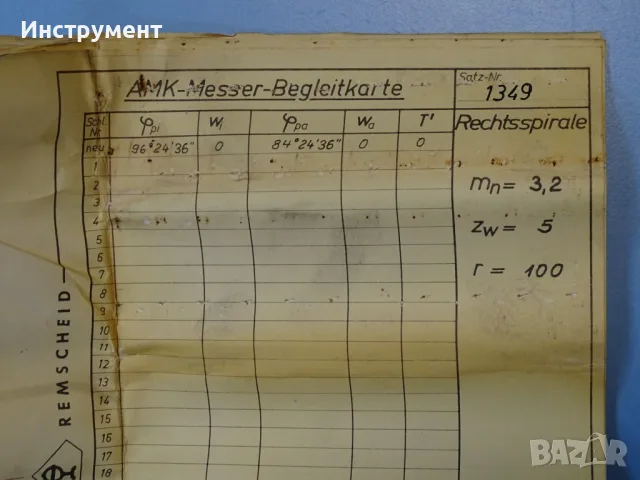 Инструмент
AMK-Messer-Begleitkarte
Satz-Nr.
1349
Schl. Nr. φpi Wi φpa Wa T'
neu 96°24'36" 0 84°24'36" 0 0
Rechtsspirale
mn = 3,2
zw = 5
r = 100
1
2
3
4
5
6
7
8
9
10
11
12
13
14
15
16
17
18
REMSCHEID
BAZAR